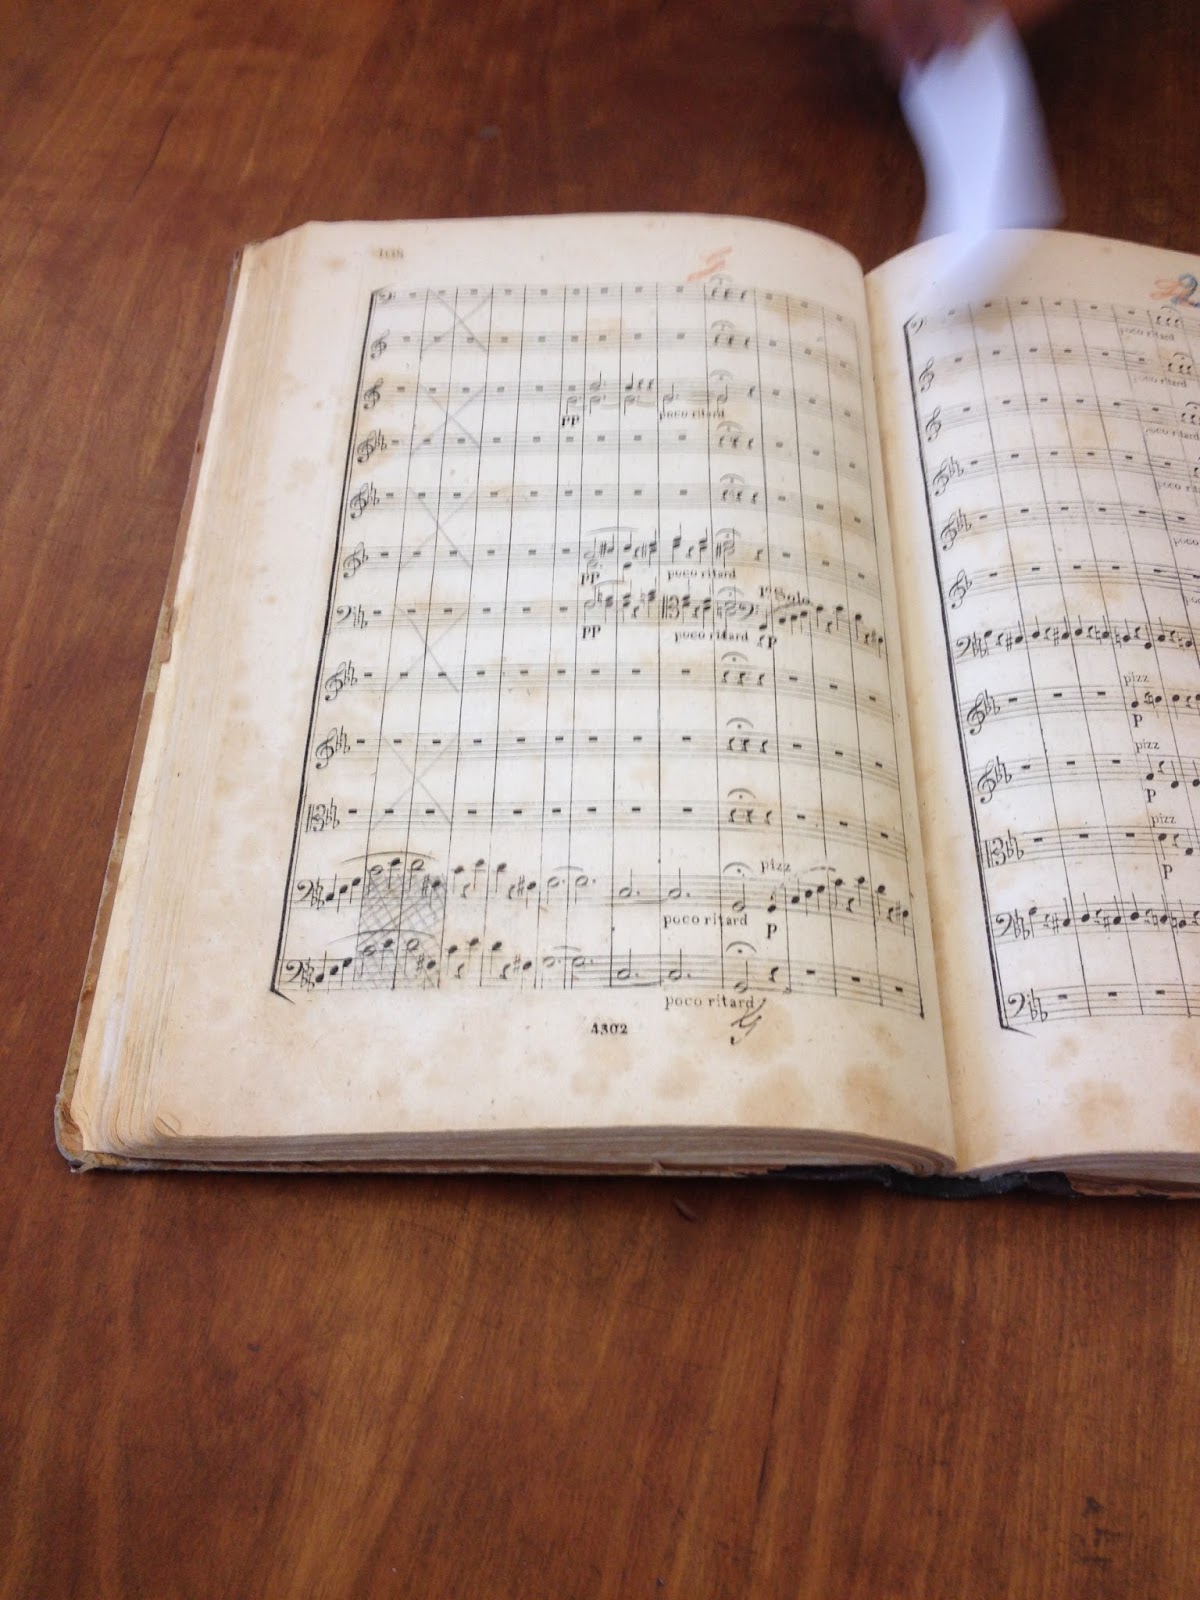 108
pp
poco ritard
pp
poco ritard
1º Solo
pp
poco ritard
p
pizz
poco ritard
p
poco ritard
4302
poco ritard
poco ritard
poco ritard
poco ritard
poco
pizz
p
pizz
p
pizz
p